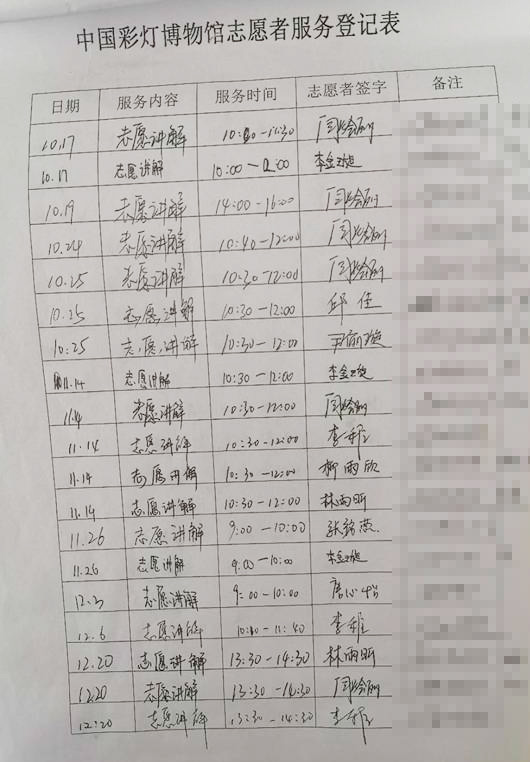 中国彩灯博物馆志愿者服务登记表
日期 服务内容 服务时间 志愿者签字 备注
10.17 志愿讲解 10:00-11:30
10.17 志愿讲解 10:00-12:00 李金璇
10.19 志愿讲解 14:00-16:00
10.24 志愿讲解 10:40-12:00
10.25 志愿讲解 10:30-12:00
10.25 志愿讲解 10:30-12:00 邱佳
10.25 志愿讲解 10:30-12:00
11.14 志愿讲解 10:30-12:00 李金璇
11.14 志愿讲解 10:30-12:00
11.14 志愿讲解 10:30-12:00
11.14 志愿讲解 10:30-12:00 柳雨欣
11.14 志愿讲解 10:30-12:00 林雨昕
11.26 志愿讲解 9:00-10:00 张铭燕
11.26 志愿讲解 9:00-10:00 李金璇
12.5 志愿讲解 9:00-10:00
12.6 志愿讲解 10:00-11:40
12.20 志愿讲解 13:30-14:30 林雨昕
12.20 志愿讲解 13:30-14:30
12.20 志愿讲解 13:30-14:30